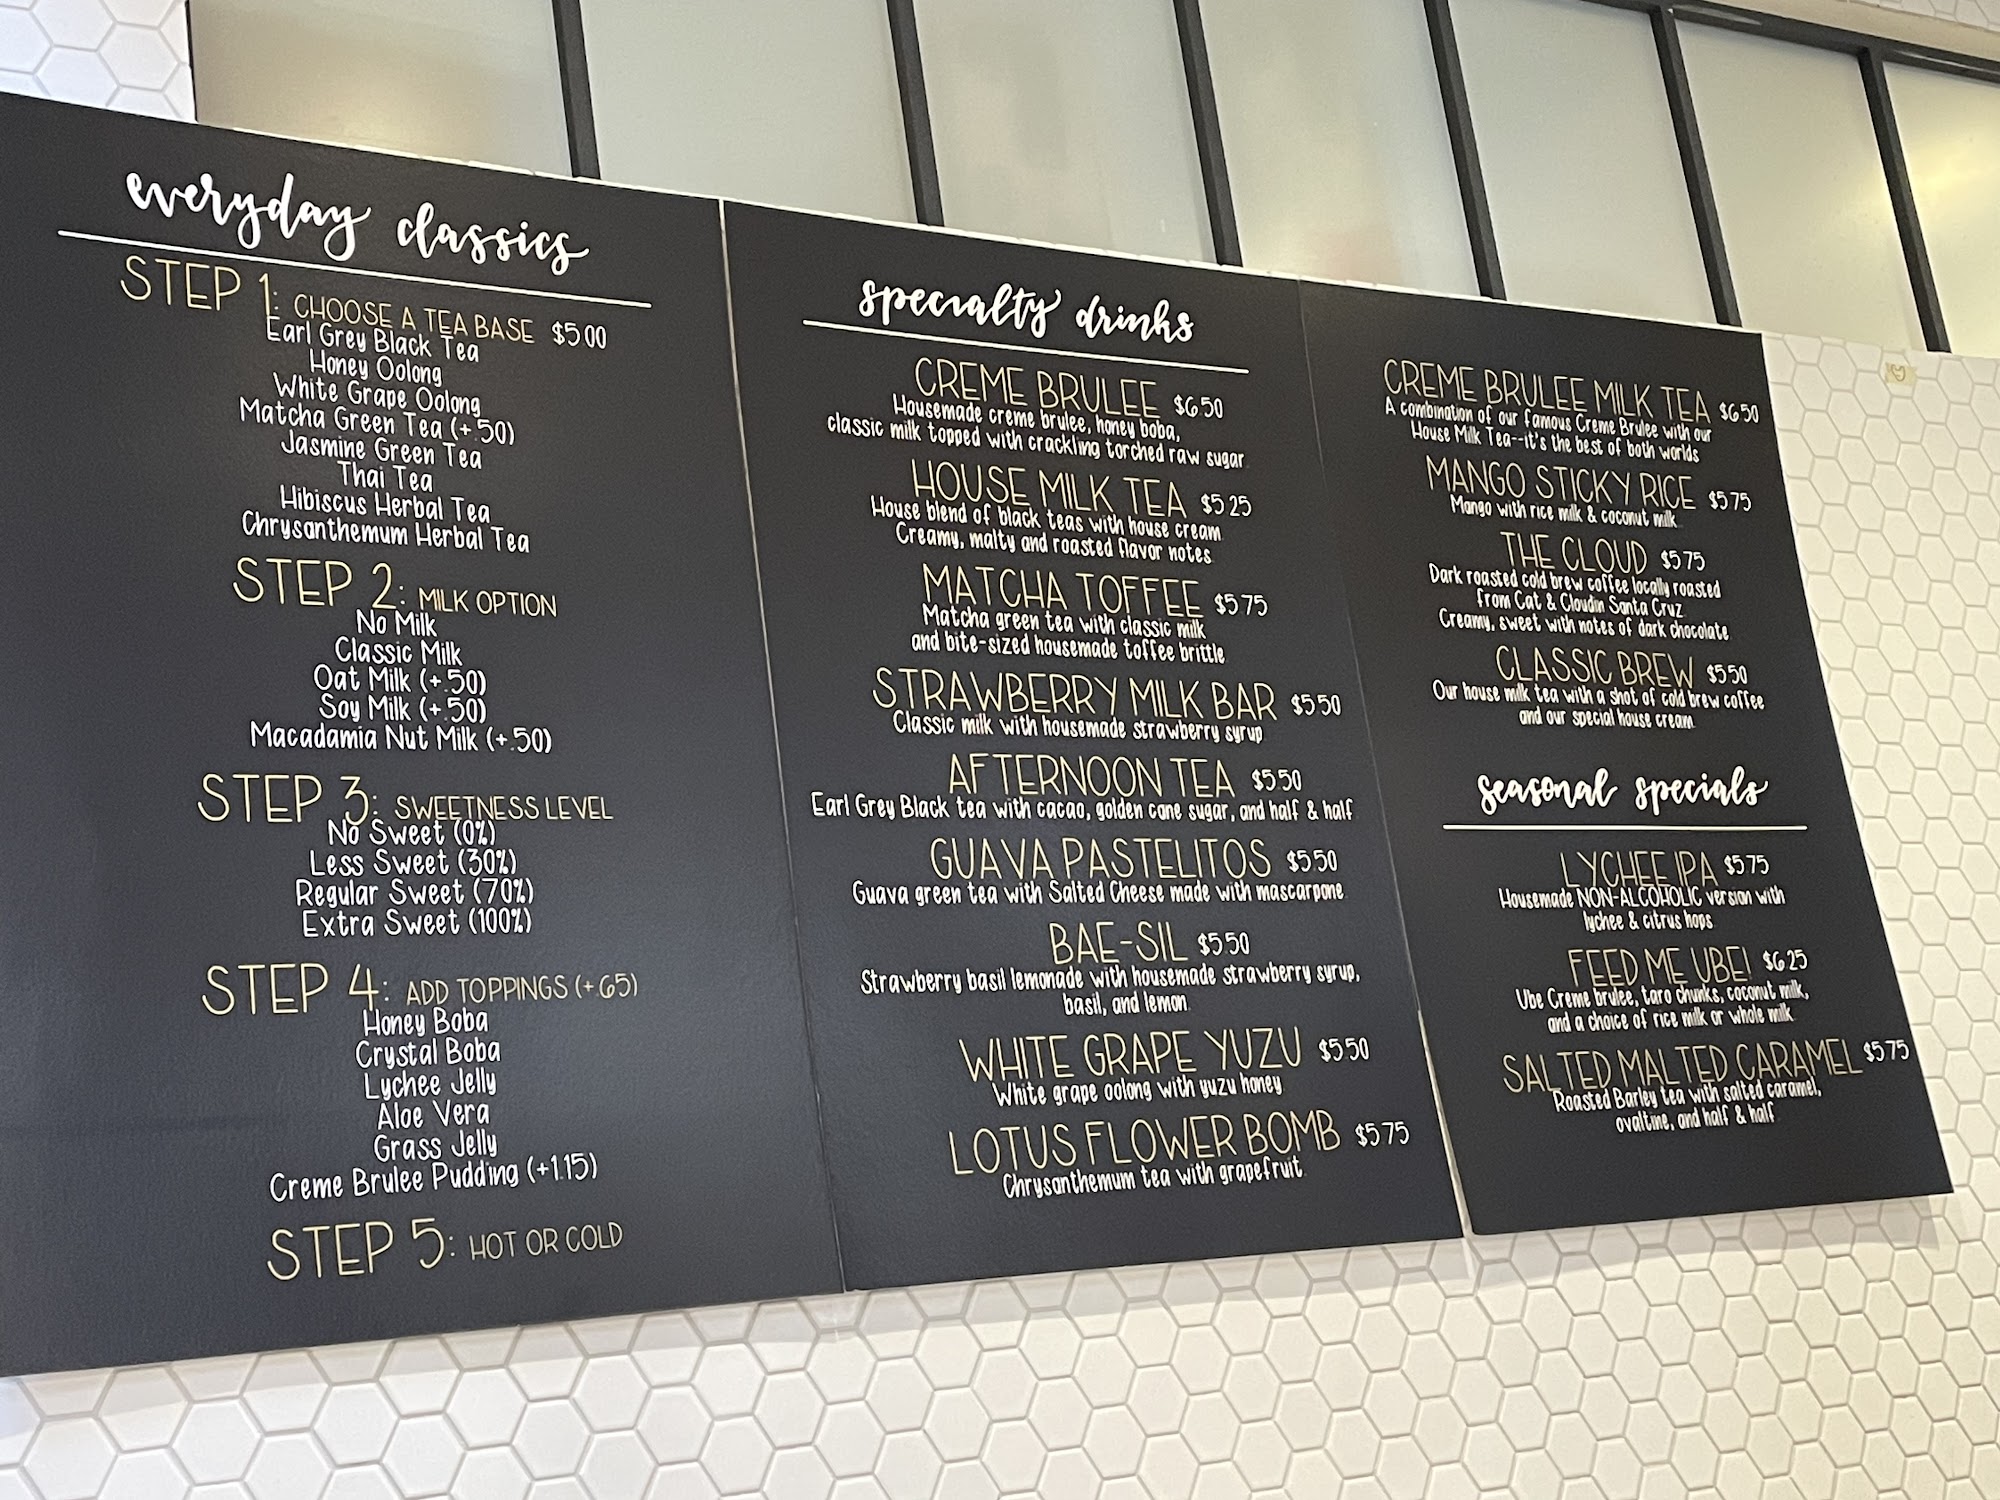 everyday classics
STEP 1: CHOOSE A TEA BASE $5.00
Earl Grey Black Tea
Honey Oolong
White Grape Oolong
Matcha Green Tea (+.50)
Jasmine Green Tea
Thai Tea
Hibiscus Herbal Tea
Chrysanthemum Herbal Tea
STEP 2: MILK OPTION
No Milk
Classic Milk
Oat Milk (+.50)
Soy Milk (+.50)
Macadamia Nut Milk (+.50)
STEP 3: SWEETNESS LEVEL
No Sweet (0%)
Less Sweet (30%)
Regular Sweet (70%)
Extra Sweet (100%)
STEP 4: ADD TOPPINGS (+.65)
Honey Boba
Crystal Boba
Lychee Jelly
Aloe Vera
Grass Jelly
Creme Brulee Pudding (+1.15)
STEP 5: HOT OR COLD
specialty drinks
CREME BRULEE $6.50
Housemade creme brulee, honey boba,
classic milk topped with crackling torched raw sugar.
HOUSE MILK TEA $5.25
House blend of black teas with house cream.
Creamy, malty and roasted flavor notes.
MATCHA TOFFEE $5.75
Matcha green tea with classic milk
and bite-sized housemade toffee brittle.
STRAWBERRY MILK BAR $5.50
Classic milk with housemade strawberry syrup.
AFTERNOON TEA $5.50
Earl Grey Black tea with cacao, golden cane sugar, and half & half.
GUAVA PASTELITOS $5.50
Guava green tea with Salted Cheese made with mascarpone.
BAE-SIL $5.50
Strawberry basil lemonade with housemade strawberry syrup,
basil, and lemon.
WHITE GRAPE YUZU $5.50
White grape oolong with yuzu honey
LOTUS FLOWER BOMB $5.75
Chrysanthemum tea with grapefruit.
CREME BRULEE MILK TEA $6.50
A combination of our famous Creme Brulee with our
House Milk Tea--it's the best of both worlds
MANGO STICKY RICE $5.75
Mango with rice milk & coconut milk.
THE CLOUD $5.75
Dark roasted cold brew coffee locally roasted
from Cat & Cloudin Santa Cruz.
Creamy, sweet with notes of dark chocolate.
CLASSIC BREW $5.50
Our house milk tea with a shot of cold brew coffee
and our special house cream.
seasonal specials
LYCHEE IPA $5.75
Housemade NON-ALCOHOLIC version with
lychee & citrus hops
FEED ME UBE! $6.25
Ube Creme brulee, taro chunks, coconut milk,
and a choice of rice milk or whole milk.
SALTED MALTED CARAMEL $5.75
Roasted Barley tea with salted caramel,
ovaltine, and half & half.